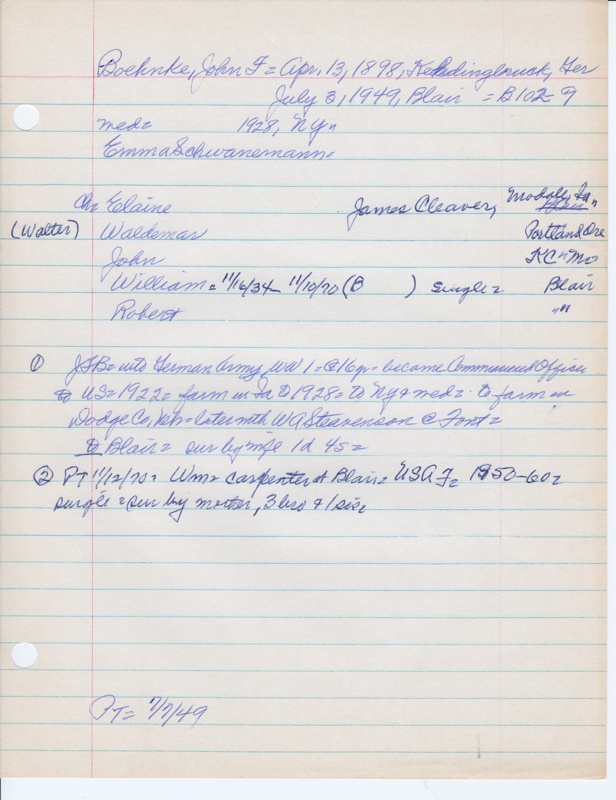 Boehnke, John F = Apr. 13, 1898, Ger
July 3, 1949, Blair = B102-9
med= 1928, NY"
Emma Schwanemann=
Ch= Elaine James Cleaver, Modale, Ia"
(Walter) Waldemar Portland Ore
John KC" Mo
William = 11/16/34- 11/10/70 (B ) single= Blair
Robert ""
① JFB= into German Army WW 1 = @16 yr= became Commissioned Officer
to US= 1922= farm in Ia to 1928= to NY & med= to farm in
Dodge Co, Neb= later with WA Steavenson @ Font=
to Blair= sur by wife 1d 4s=
② PT 11/12/70= Wm= carpenter at Blair= USAF= 1950-60=
single = sur by mother, 3 bro & 1 sis=
PT= 7/7/49